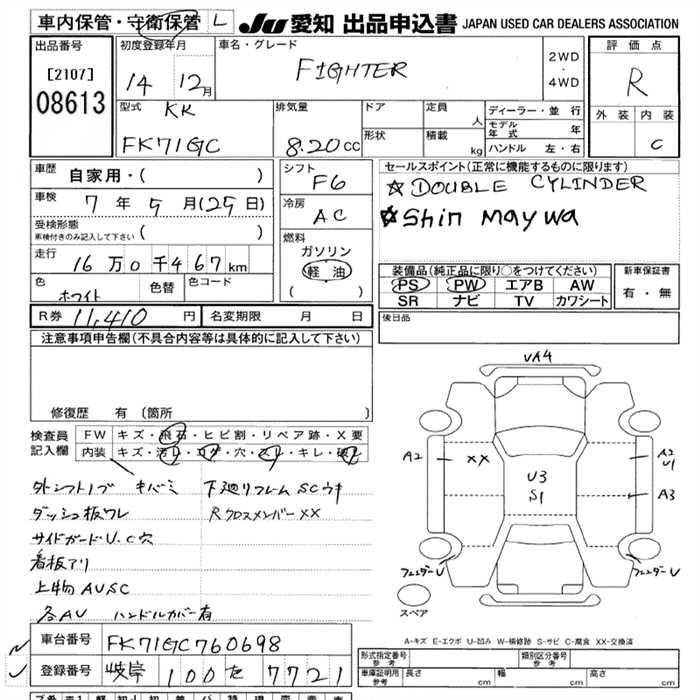 車内保管・守衛保管 L JU 愛知 出品申込書 JAPAN USED CAR DEALERS ASSOCIATION
出品番号
[2107]
08613
初度登録年月
14 12月
車名・グレード
FIGHTER
2WD
・
4WD
評価点
R
外装 内装
C
型式 KK
FK71GC
排気量
8.20cc
ドア
形状
定員 人
積載 kg
ディーラー・並行
モデル年式 年
ハンドル 左・右
車歴 自家用・( )
車検 7年5月(25日)
受検形態
車検付きのみ記入して下さい ( )
走行 16万0千467km
色 ホワイト 色替 色コード
シフト
F6
冷房
AC
燃料
ガソリン
軽油
( )
セールスポイント(正常に機能するものに限ります)
☆DOUBLE CYLINDER
☆Shin Maywa
装備品(純正品に限り○をつけてください)
PS PW エアB AW
SR ナビ TV カワシート
新車保証書
有・無
R券 11,410円 名変期限 月 日
後日品
注意事項申告欄(不具合内容等は具体的に記入して下さい)
修復歴 有 (箇所
検査員
記入欄
FW キズ・飛石・ヒビ割・リペア跡・X要
内装 キズ・汚レ・コゲ・穴・スレ・キレ・破レ
外シフトノブ キバミ 下廻りフレームSCウキ
ダッシュ板ワレ RクロスメンバーXX
サイドガードU、C穴
看板アリ
上物AUSC
各AU ハンドルカバー有
UA4
A2 XX
U3
S1
A2
U1
A3
フェンダーU フェンダーU
スペア
A-キズ E-エクボ U-凹み W-補修跡 S-サビ C-腐食 XX-交換済
車台番号 FK71GC760698
登録番号 岐阜 100 せ 7721
形式指定番号
参考
類別区分番号
参考
車庫証明用
参考
長さ cm 幅 cm 高さ cm